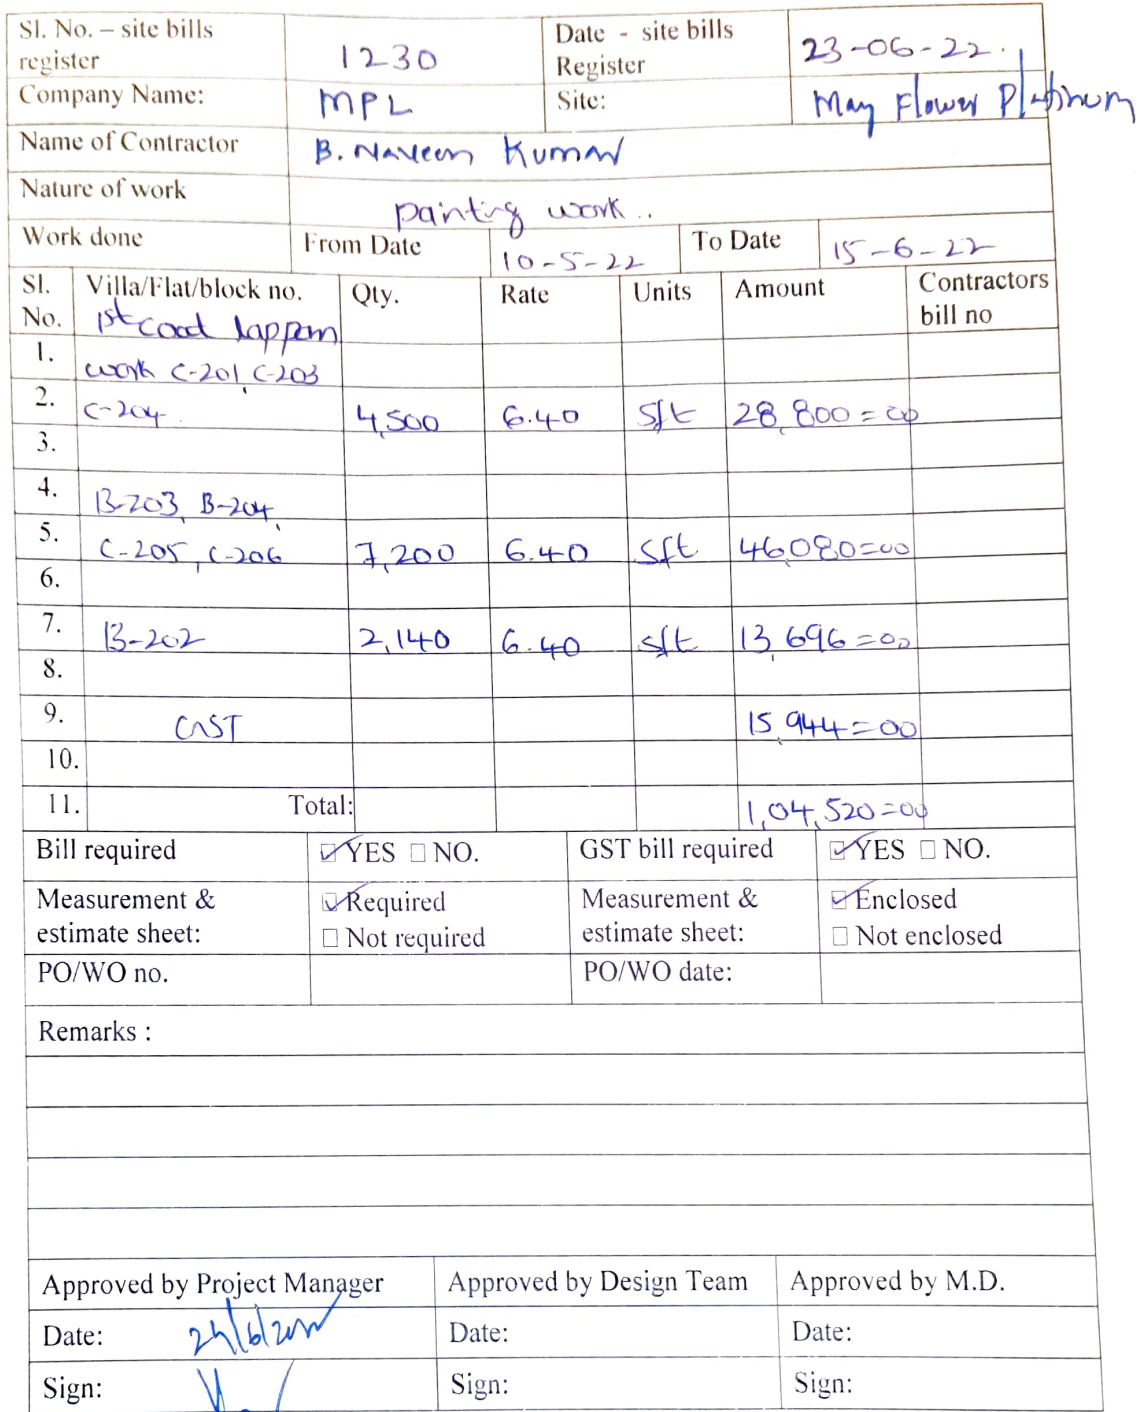 Sl. No. – site bills register 1230 Date - site bills Register 23-06-22.
Company Name: MPL Site: May Flower Platinum
Name of Contractor B. Naveen Kumar
Nature of work painting work..
Work done From Date 10-5-22 To Date 15-6-22
Sl. No. Villa/Flat/block no. Qty. Rate Units Amount Contractors bill no
1st coat lappam
1. work C-201, C-203
2. C-204. 4,500 6.40 Sft 28,800=00
3.
4. B-203, B-204,
5. C-205, C-206 7,200 6.40 Sft 46,080=00
6.
7. B-202 2,140 6.40 sft 13,696=00
8.
9. GST 15,944=00
10.
11. Total: 1,04,520=00
Bill required ☑ YES ☐ NO. GST bill required ☑ YES ☐ NO.
Measurement & estimate sheet: ☑ Required ☐ Not required Measurement & estimate sheet: ☑ Enclosed ☐ Not enclosed
PO/WO no. PO/WO date:
Remarks :
Approved by Project Manager Approved by Design Team Approved by M.D.
Date: Date: Date:
Sign: Sign: Sign: